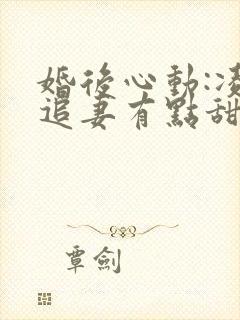 婚後心動:凌
追妻有點甜
覃劍